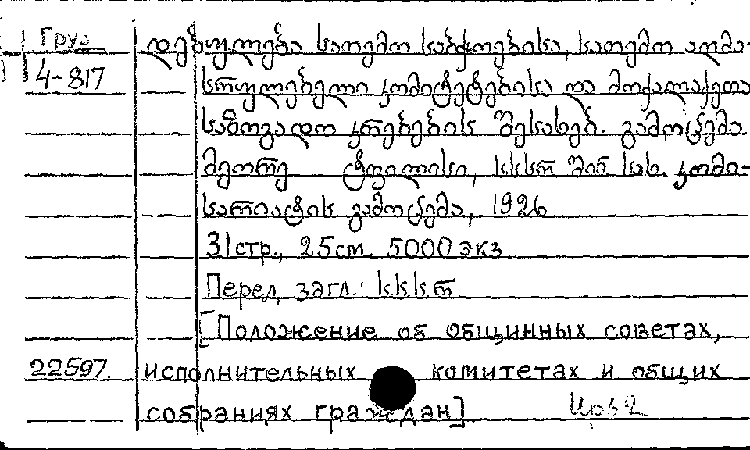 Груз
4-817
დებულება სათემო საბჭოების, სათემო აღმა-
სრულებელი კომიტეტებისა და მოქალაქეთა
საზოგადო კრებების შესახებ. გამოცემა
მეორე ტფილისი, სსსრ შინ. სახ. კომი-
სარიატის გამოცემა, 1926
31стр., 25см. 5000 экз
Перед загл.: სსსრ
[Положение об общинных советах,
22597. исполнительных комитетах и общих
собраниях граждан]